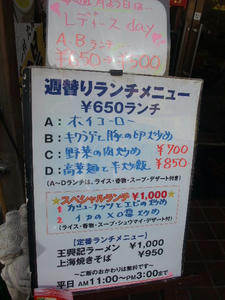 毎週月よう日は…
Lディース day
A.Bランチ
¥650→¥500
週替りランチメニュー
¥650ランチ
A：ホイコーロー
B：キクラゲと豚の卵炒め
C：野菜の肉炒め ¥700
D：高菜麺と半炒飯 ¥850
(A～Dランチは、ライス・春物・スープ・デザート付き)
★スペシャルランチ¥1,000★
1 カシューナッツとエビの炒め
2 イカのXO醤炒め
(ライス・春物・スープ・シュウマイ・デザート付)
【定番ランチメニュー】
王興記ラーメン ¥1,000
上海焼きそば ¥950
～ご飯のおかわりは無料です～
平日 AM11:00～PM3:00まで